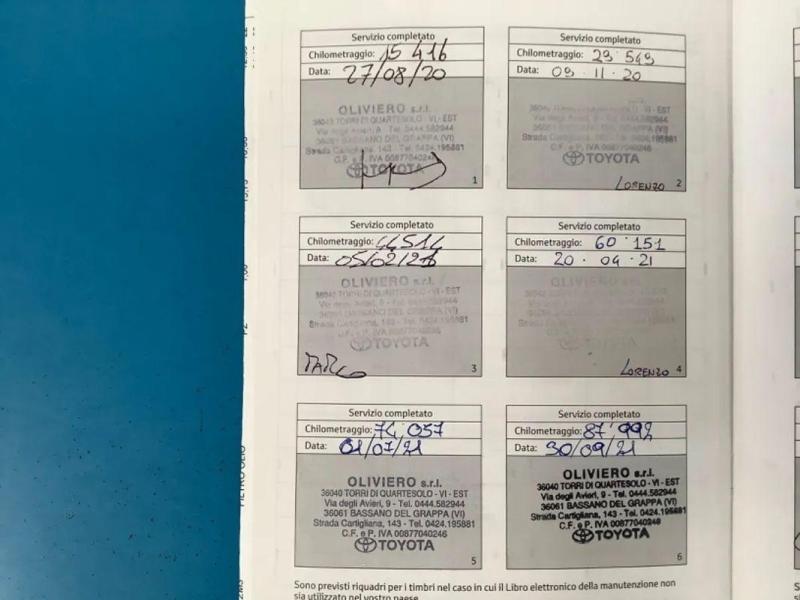 Servizio completato
Chilometraggio: 15 416
Data: 27/08/20
OLIVIERO s.r.l.
36040 TORRI DI QUARTESOLO - VI - EST
Via degli Avieri, 9 - Tel. 0444.582944
36061 BASSANO DEL GRAPPA (VI)
Strada Cartigliana, 143 - Tel. 0424.195881
C.F. e P. IVA 00877040246
TOYOTA
1
Servizio completato
Chilometraggio: 29 549
Data: 09 · 11 · 20
36040 TORRI DI QUARTESOLO - VI - EST
Via degli Avieri, 9 - Tel. 0444.582944
36061 BASSANO DEL GRAPPA (VI)
Strada Cartigliana, 143 - Tel. 0424.195881
C.F. e P. IVA 00877040246
TOYOTA
LORENZO 2
Servizio completato
Chilometraggio: 44514
Data: 05/02/21
OLIVIERO s.r.l.
36040 TORRI DI QUARTESOLO - VI - EST
Via degli Avieri, 9 - Tel. 0444.582944
36061 BASSANO DEL GRAPPA (VI)
Strada Cartigliana, 143 - Tel. 0424.195881
C.F. e P. IVA 00877040246
TOYOTA
MARCO 3
Servizio completato
Chilometraggio: 60 · 151
Data: 20 · 04 · 21
OLIVIERO
TOYOTA
LORENZO 4
Servizio completato
Chilometraggio: 74 057
Data: 01/07/21
OLIVIERO s.r.l.
36040 TORRI DI QUARTESOLO - VI - EST
Via degli Avieri, 9 - Tel. 0444.582944
36061 BASSANO DEL GRAPPA (VI)
Strada Cartigliana, 143 - Tel. 0424.195881
C.F. e P. IVA 00877040246
TOYOTA
5
Servizio completato
Chilometraggio: 87'992
Data: 30/09/21
OLIVIERO s.r.l.
36040 TORRI DI QUARTESOLO - VI - EST
Via degli Avieri, 9 - Tel. 0444.582944
36061 BASSANO DEL GRAPPA (VI)
Strada Cartigliana, 143 - Tel. 0424.195881
C.F. e P. IVA 00877040246
TOYOTA
6
Sono previsti riquadri per i timbri nel caso in cui il Libro elettronico della manutenzione non
sia utilizzato nel vostro paese